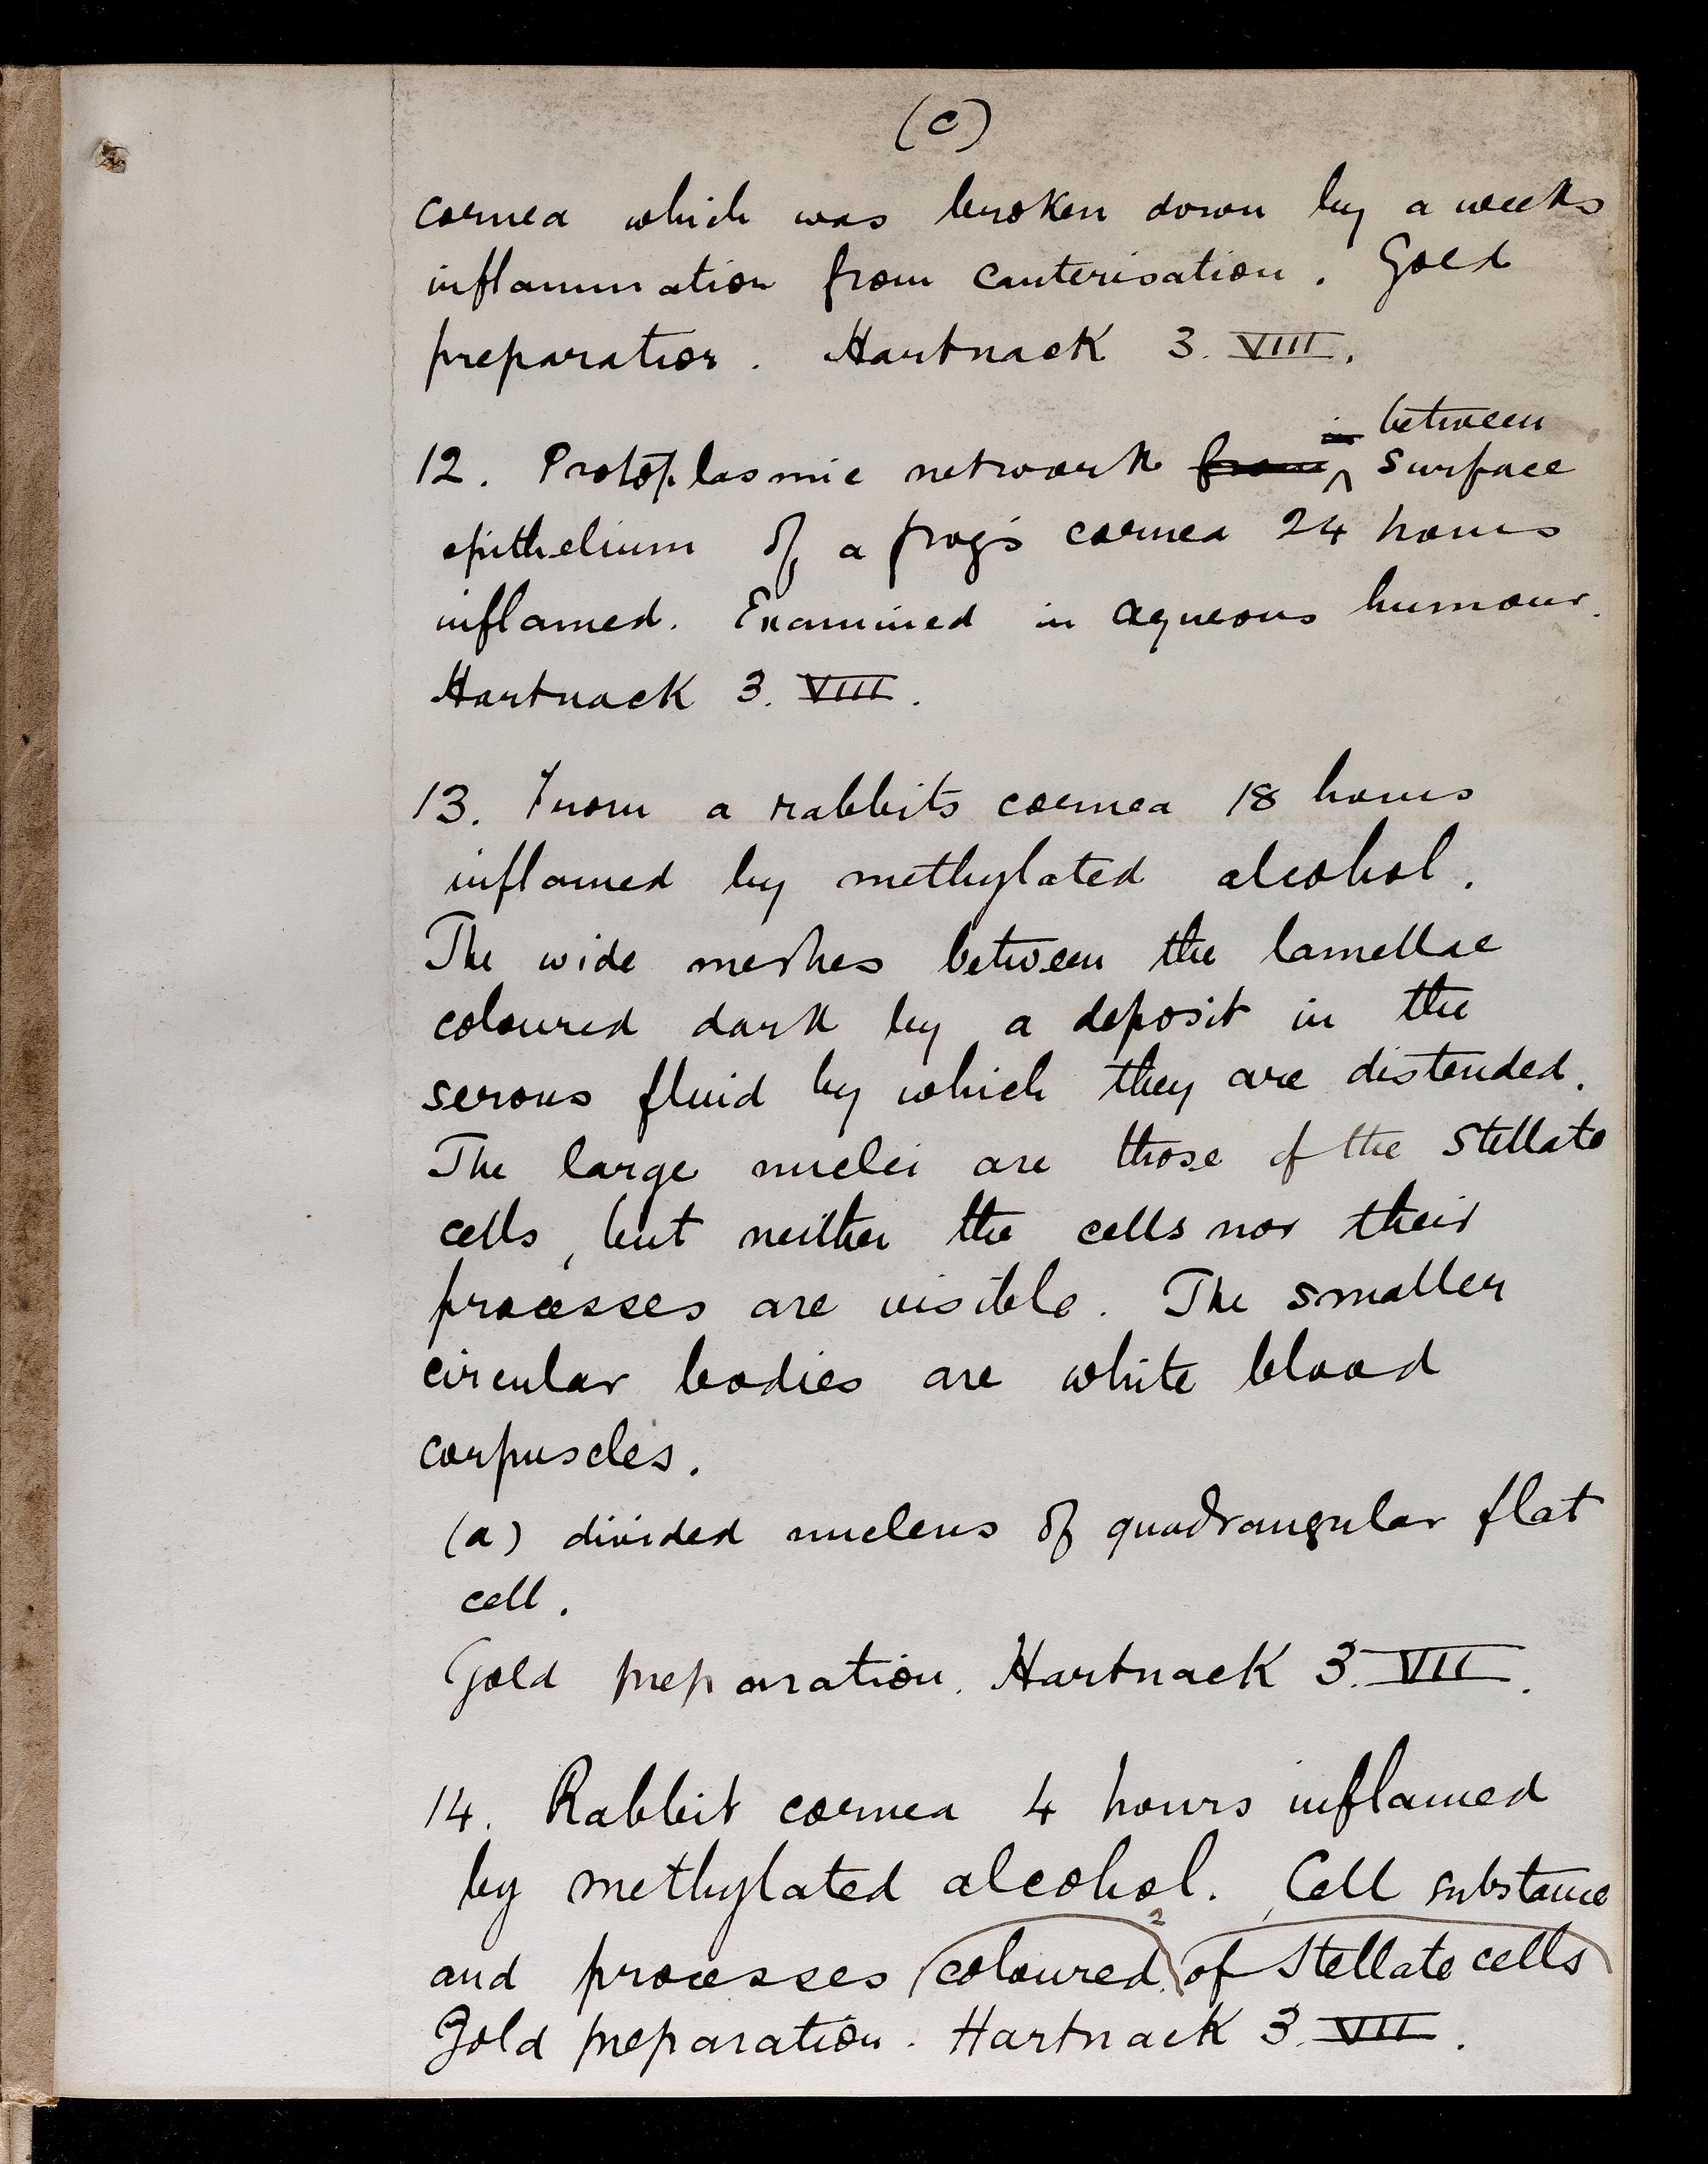 (c)
cornea which was broken down by a weeks
inflammation from cauterisation. Gold
preparation. Hartnack 3. VIII.
in between
12. Protoplasmic network from ^ surface
epithelium of a frog's cornea 24 hours
inflamed. Examined in aqueous humour.
Hartnack 3. VIII.
13. From a rabbits cornea 18 hours
inflamed by methylated alcohol.
The wide meshes between the lamellae
coloured dark by a deposit in the
serous fluid by which they are distended.
The large nuclei are those of the stellate
cells, but neither the cells nor their
processes are visible. The smaller
circular bodies are white blood
corpuscles.
(a) divided nucleus of quadrangular flat
cell.
Gold preparation. Hartnack 3. VII.
14. Rabbit cornea 4 hours inflamed
by methylated alcohol. Cell substance
and processes coloured. 2 of stellate cells
Gold preparation. Hartnack 3. VII.